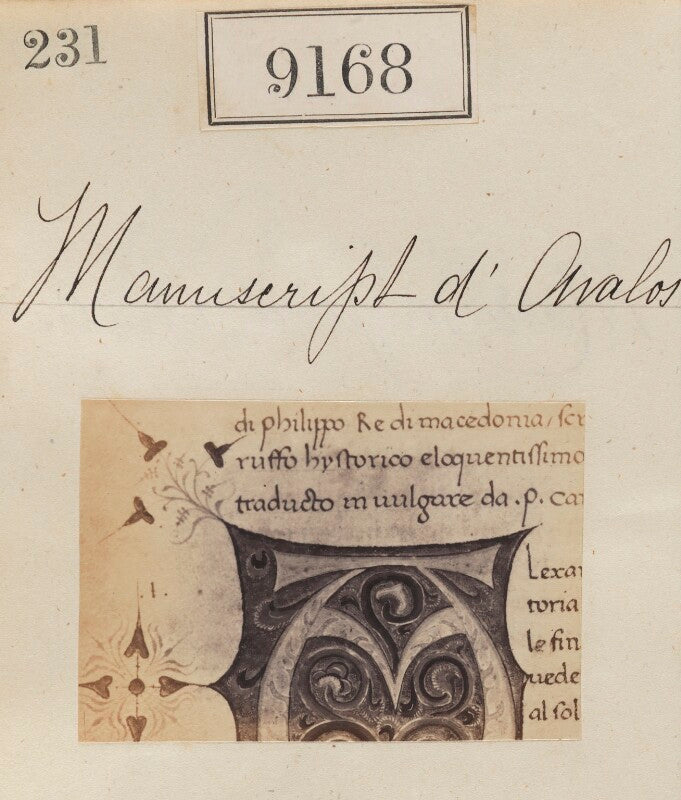 231
9168
Manuscript d' Avalos
di philippo Re di macedonia, scr
ruffo hystorico eloquentissimo
traducto in uulgare da .p. ca
.1.
Lexa
toria
le fin
uede
al sol